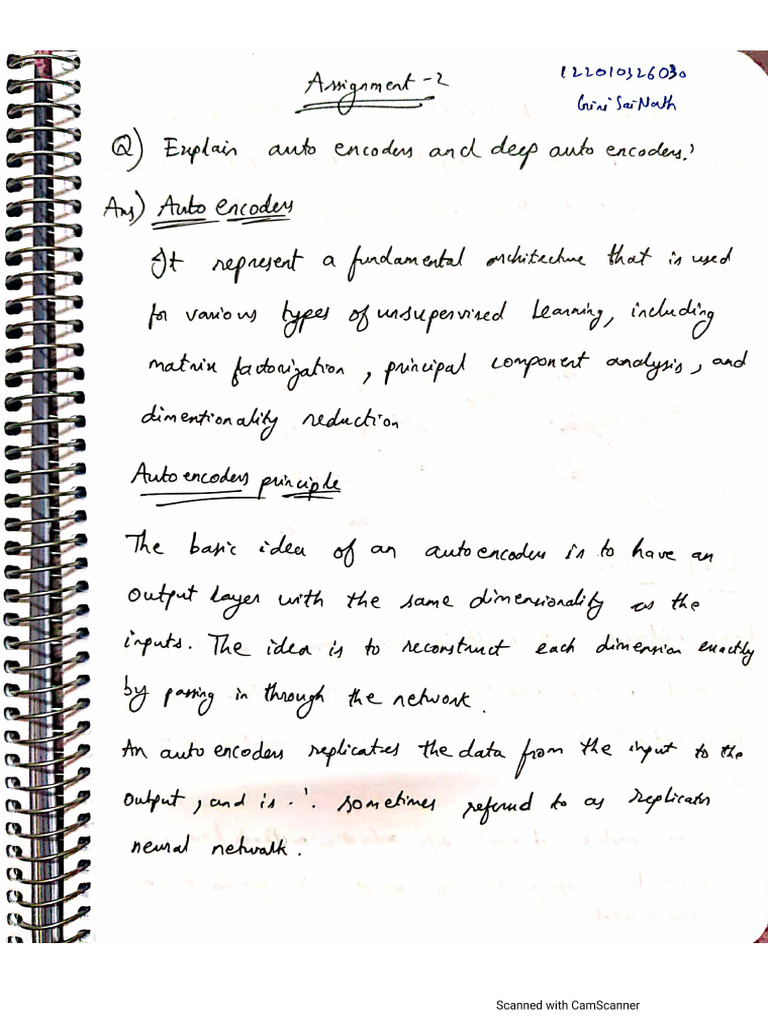 Assignment -2
122010326030
Giri Sai Nath
Q) Explain auto encoders and deep auto encoders?
Ans) Auto encoders
It represent a fundamental architecture that is used
for various types of unsupervised Learning, including
matrix factorization, principal component analysis, and
dimentionality reduction
Auto encoders principle
The basic idea of an autoencoders is to have an
output layer with the same dimensionality as the
inputs. The idea is to reconstruct each dimension exactly
by passing in through the network.
An auto encoders replicatses the data from the input to the
output, and is ∴ sometimes referred to as replicator
neural network.
Scanned with CamScanner